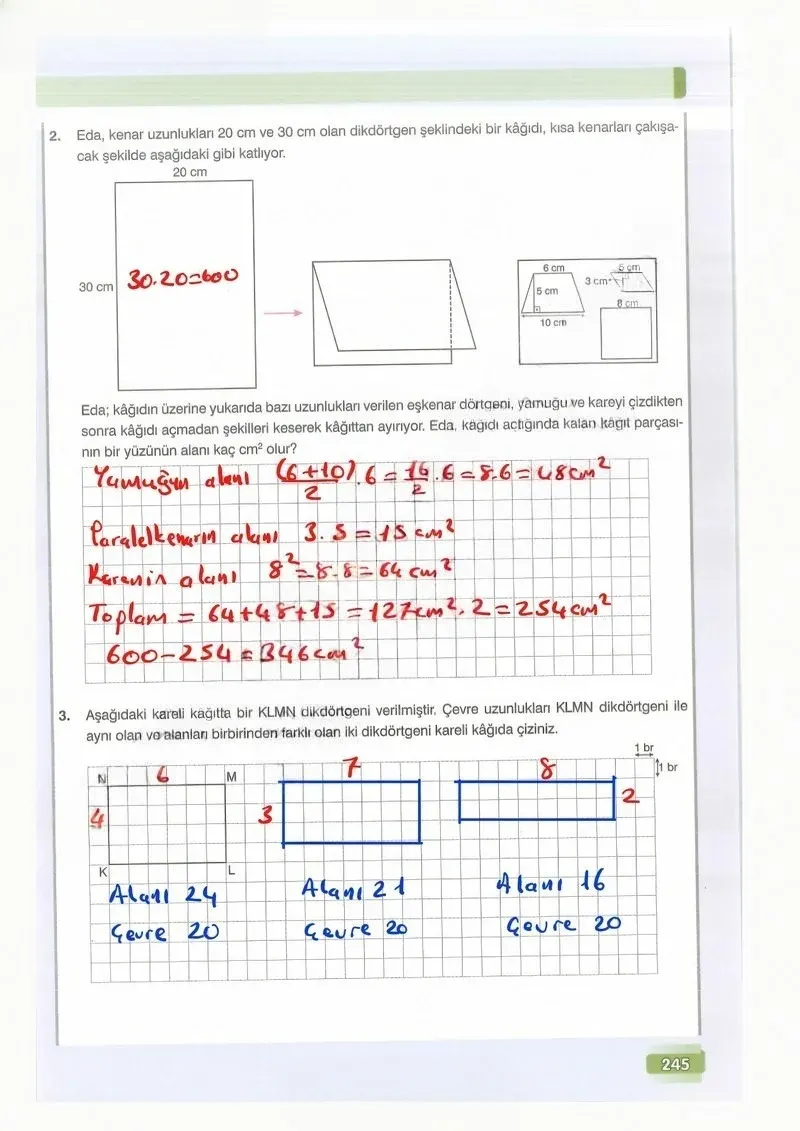 2. Eda, kenar uzunlukları 20 cm ve 30 cm olan dikdörtgen şeklindeki bir kâğıdı, kısa kenarları çakışa-
cak şekilde aşağıdaki gibi katlıyor.
20 cm
30 cm
30.20=600
6 cm
5 cm
10 cm
5 cm
3 cm
8 cm
Eda; kâğıdın üzerine yukarıda bazı uzunlukları verilen eşkenar dörtgeni, yamuğu ve kareyi çizdikten
sonra kâğıdı açmadan şekilleri keserek kâğıttan ayırıyor. Eda, kâğıdı açtığında kalan kâğıt parçası-
nın bir yüzünün alanı kaç cm² olur?
Yamuğun alanı (6+10)/2 . 6 = 16/2 . 6 = 8.6 = 48cm²
Paralelkenarın alanı 3.5 = 15 cm²
Karenin alanı 8² = 8.8 = 64 cm²
Toplam = 64+48+15 = 127cm². 2 = 254cm²
600-254 = 346cm²
3. Aşağıdaki kareli kâğıtta bir KLMN dikdörtgeni verilmiştir. Çevre uzunlukları KLMN dikdörtgeni ile
aynı olan ve alanları birbirinden farklı olan iki dikdörtgeni kareli kâğıda çiziniz.
1 br
1 br
N 6 M 7 8
4 3 2
K L
Alanı 24 Alanı 21 Alanı 16
Çevre 20 Çevre 20 Çevre 20
245